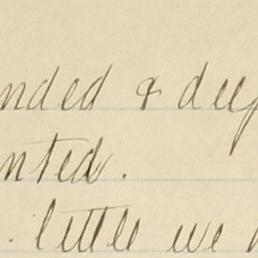 nded & deep
nted.
. little we